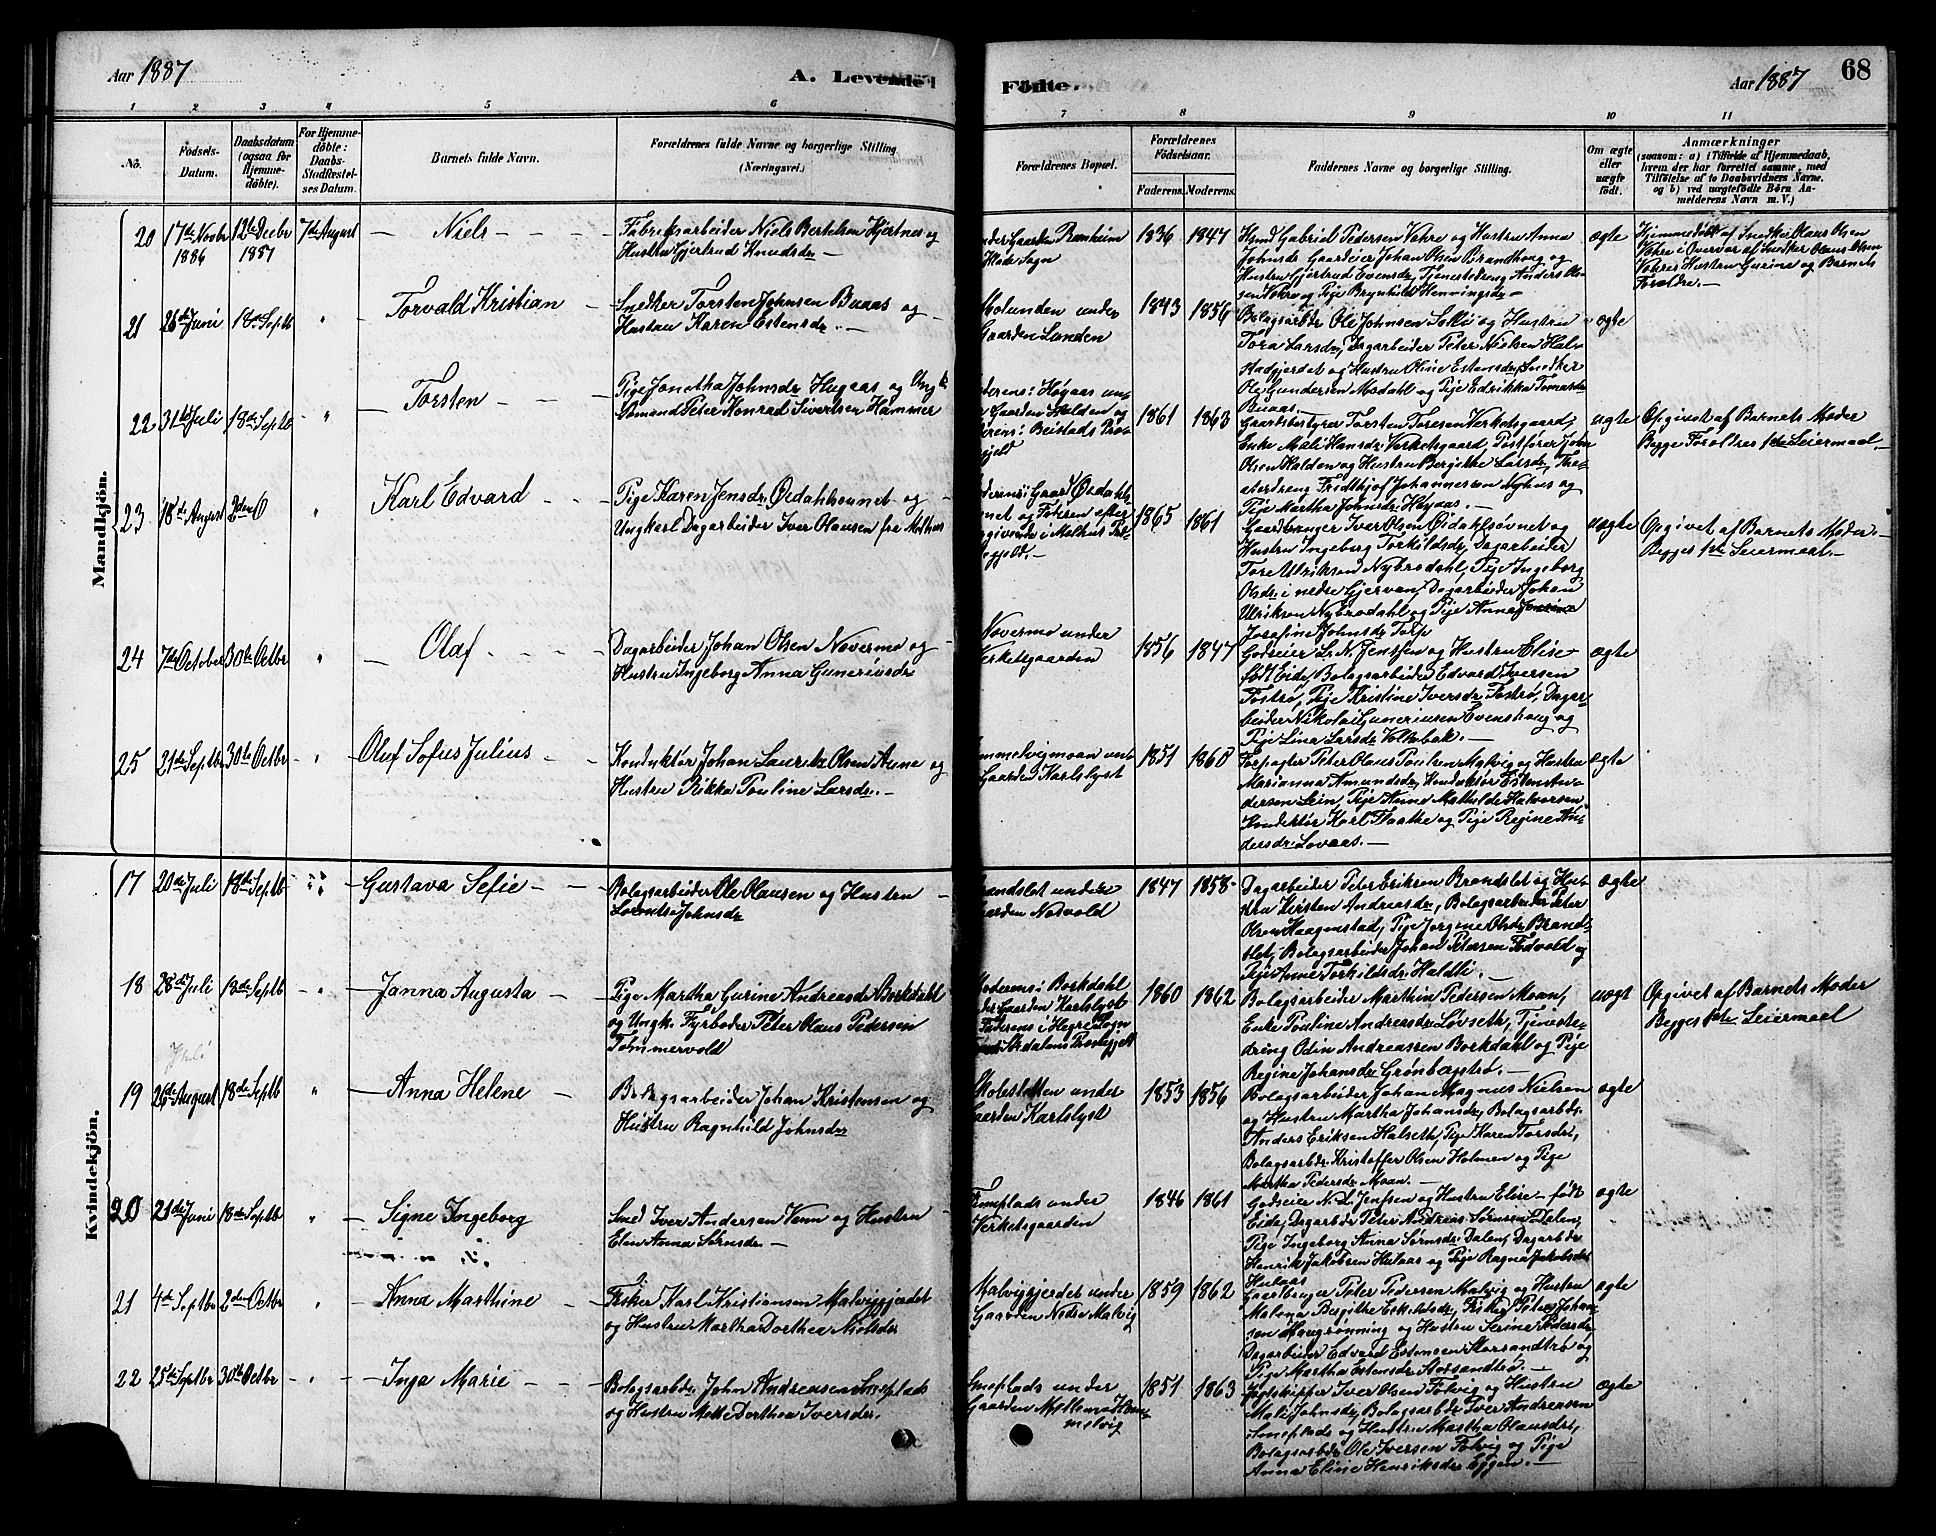 Aar 1887
A. Levende
Födte.
Aar 1887
68
1 2 3 4 5 6 7 8 9 10 11
No.
Fødsels-
Datum.
Daabsdatum
(ogsaa for
Hjemme-
døbte).
For Hjemme-
døbte:
Daabs-
Stadfæstel-
ses Datum.
Barnets fulde Navn.
Forældrenes fulde Navne og borgerlige Stilling
(Næringsvei.)
Forældrenes Bopæl.
Forældrenes
Födselsaar.
Faderens. Moderens.
Faddernes Navne og borgerlige Stilling.
Om ægte
eller
uægte
født.
Anmærkninger
(saasom: a) i Tilfælde af Hjemmedaab,
hvem der har forrettet samme, med
Tilföielse af to Daabsvidners Navne,
og b) ved uægtefødte Börn An-
melderens Navn m. V.)
Mandkjön.
20 17de Novbr 12te Decbr 7de August — Niels — — —
1886
Fabriksarbeider Niels Bertelsen Hjertnes og
Hustru Gjertrud Knudsdr —
Gaarden Ranheim
Sogn
1836 1847
Gabriel Pedersen Vekre og Hustru Anna
Johnsdr Gaardeier Johan Olsen Brandhoug og
Hustru Gjertrud Evensdr, Tjenestedreng Anders Ol-
sen Vekre og Pige Brynhild Henningsdr —
ægte
Hjemmedøbt af Snedker Olaus Olsen
Vekre i Overvær af Snedker Olaus Olsen
Vekres Hustru Gurine og Barnets
Forældre. —
21 26de Juni 18de Septb " — Torvald Kristian —
Snedker Torsten Johnsen Buaas og
Hustru Karen Estensdr. —
Molunden under
Gaarden Lunden
1843 1856
Bolagsarbdr Ole Johnsen Sollø og Hustru
Tora Larsdr, Dagarbeider Peter Nielsen Hal-
stadgjerdet og Hustru Oline Estensdr, Snedker
Ole Gundersen Mosdahl og Pige Edrikka Tomasdr
Buaas. —
ægte
22 31te Juli 18de Septb " — Torsten — —
Pige Jonetha Johnsdr Hugaas og Ungk.
Sømand Peter Konrad Sivertsen Hammer
Høgaas un-
Gaarden Halden og
Beistads Præ-
gjeld
1861 1863
Gaardsbestyrer Torsten Toresen Verketsgaard,
Enke Mali Hansdr Verketsgaard, Postfører John
Olsen Halden og Hustru Bergitte Larsdr,
Fridthjof Johannesen Nyhus og
Pige Martha Johnsdr Hugaas. —
uægte
Opgivet af Barnets Moder
Begge Forældres 1ste Leiermaal. —
23 18de August 2den O " Karl Edvard — —
Pige Karen Jensdr Øidahlsvunet og
Ungkarl Dagarbeider Iver Olausen fra Melhus
Gaard Øidahls-
og Faderen efter
i Melhus Præ-
gjeld. —
1865 1861
Gaardbruger Iver Olsen Øidahlsøvnet og
Hustru Ingeborg Torkildsdr, Dagarbeider
Tore Ulriksen Nybrodahl, Pige Ingeborg
Olsdr i nedre Gjervan, Dagarbeider Johan
Ulriksen Nybrodahl og Pige Anna
Josefine Johnsdr Torp
uægte
Opgivet af Barnets Moder. —
Begges 1ste Leiermaal. —
24 7de October 30te Octbr " — Olaf — — —
Dagarbeider Johan Olsen Novermo og
Hustru Ingeborg Anna Guneriusdr
Novermo under
Verketsgaarden
1856 1847
Godseier L. N. Jenssen og Hustru Elise
født Eide, Bolagsarbeider Edvard Iversen
Fostrø, Pige Kristine Iversdr Fostrø, Dagar-
beider Nikolai Guneriusen Evenshoug og
Pige Lina Larsdr Volksbak. —
ægte
25 21de Septbr 30te Octbr " Oluf Sofus Julius —
Konduktør Johan Laurits Olsen Aune og
Hustru Rikka Pouline Larsdr. —
Hommelvigmoan und.
Gaarden Karlslyst
1851 1860
Forpagter Peter Olaus Poulsen Malvig og Hustru
Marianna Amundsdr, Konduktør Esten An-
dersen Lein, Pige Anne Mathilde Halvorsen
Konduktør Karl Flaathe og Pige Regine An-
dersdr Lovaas. —
ægte
Kvindekjön.
17 20de Juli 18de Septb — Gustava Sefie — —
Bolagsarbeider Ole Olausen og Hustru —
Lorentse Johnsdr
Brandslet under
Gaarden Nosvold
1847 1858
Dagarbeider Peter Eriksen Brandslet og Hu-
stru Kirsten Andreasdr, Bolagsarbeider Peter
Olsen Haagenstad, Pige Jørgine Olsdr Brand-
slet, Bolagsarbeider Johan Petersen Fosvold og
Pige Anne Torkildsdr Haldli. —
ægte
18 28de Juli 18de Septb " — Janna Augusta —
Pige Martha Gurine Andreasdr Borkdahl
og Ungk. Fyrbøder Peter Olaus Pedersen
Tømmervold
Moderens: Borkdahl
under Gaarden Karlslyst
Faderens i Hegre Sogn
Stjørdalens Præstegjeld
1860 1862
Bolagsarbeider Marthin Pedersen Moan,
Enke Pouline Andreasdr Løvseth, Tjeneste-
dreng Odin Andreassen Borkdahl og Pige
Regine Johansdr Grønbægstrø. —
uægt
Opgivet af Barnets Moder
Begges 1ste Leiermaal
19 26de August 18de Septb " — Anna Helene —
Bolagsarbeider Johan Kristensen og
Hustru Ragnhild Johnsdr
Skolestatten under
Gaarden Karlslyst
1853 1856
Bolagsarbeider Johan Magnus Nielsen
og Hustru Martha Johansdr, Bolagsarbdr.
Anders Eriksen Halseth, Pige Karen Torsdr,
Bolagsarbdr. Kristoffer Olsen Holmen og Pige
Martha Pedersdr Moan. —
ægte
20 21de Juni 18de Septb " — Signe Ingeborg
Smed Iver Andersen Venn og Hustru
Elen Anna Sørnsdr —
under
Verketsgaarden
1846 1861
Godseier N. L. Jenssen og Hustru Elise født
Eide, Dagarbdr Peter Andreas Sørnsen Dalen,
Pige Ingeborg Anna Sørnsdr Dalen, Dagarbdr
Henrik Jakobsen Hulaas og Pige Ragna Jakobsdr
Hulaas
ægte
21 4de Septbr 2den Octbr " — Anna Marthine —
Fisker Karl Kristiansen Malviggjerdet
og Hustru Martha Dorthea Nielsdr
Malviggjerdet under
Gaarden Nedre Malvig
1859 1862
Gaardbruger Peter Pedersen Malvig og Hustru
Malena Bergitte Eskildsdr, Fisker Peter Johan-
sen Haugrønning og Hustru Serine Pedersdr
Dagarbeider Edvard Estensen Storsandtrø og
Pige Martha Estensdr Storsandtrø. —
ægte
22 25de Septbr 30te Octbr — " — Inga Marie — —
Bolagsarbdr. John Andreasen Smeplads
og Hustru Mette Dorthea Iversdr.
Smeplads under
Gaarden Mellem Hom-
melvig
1851 1863
Jægtskipper Iver Olsen Folvig og Hustru
Mali Johnsdr, Bolagsarbdr Iver Andreasen
Smeplads og Hustru Martha Olausdr,
Bolagsarbdr Ole Iversen Folvig og Pige
Anna Eline Henriksdr Eggen. —
ægte